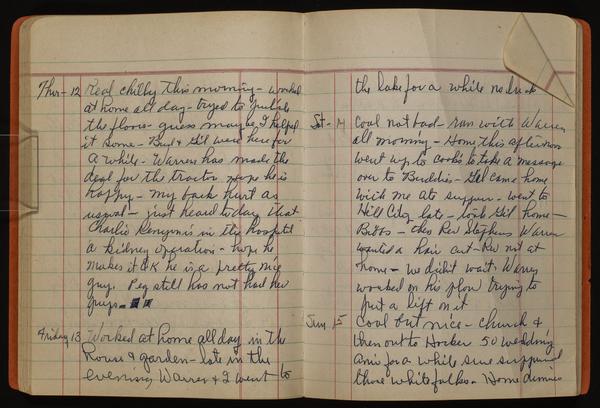 Thur - 12 Real chilly this morning - worked
at home all day - tryed to
the floors - guess maybe I helped
it some - Bud & Gil were here for
a while - Warren has made the
deal for the tractor hope he is
happy - my back hurt as
usual - just heard today that
Charlie Kenyon is in the hospital
a kidney operation - hope he
makes it OK he is a pretty nice
guy. Peg still has not had her
pups -
Friday 13 Worked at home all day in the
house & garden - late in the
evening Warren & I went to
the lake for a while no luck
Sat - 14 Cool not bad - ran with Warren
all morning - Home this afternoon
went up to Cooks to take a message
over to Buddies - Gil came home
with me ate supper - went to
Hill City late - took Gil home -
Bibbs - this Rev Stephens Warren
wanted a hair cut - Rev not at
home - we didnt wait. Warren
worked on his plow trying to
put a lift on it
Sun 15 Cool but nice - church &
then out to 50 wedding
for a while sure surprised
those white folks - Home